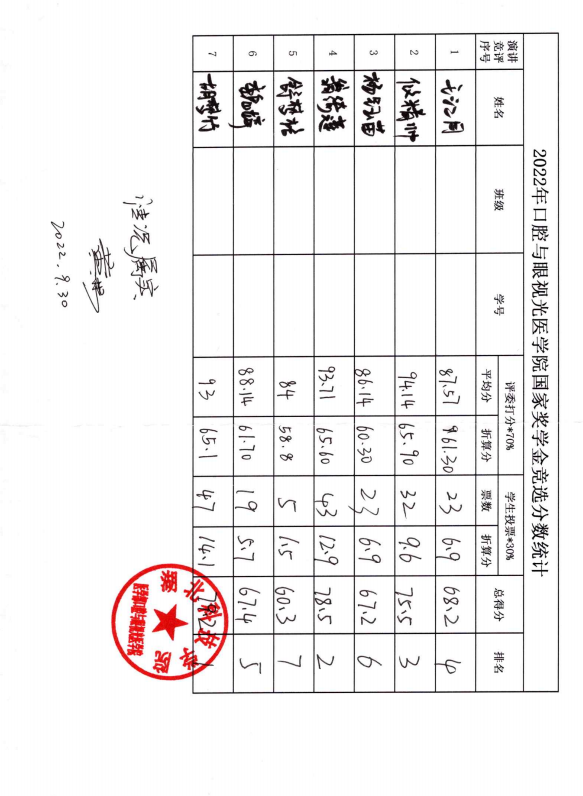 2022年口腔与眼视光医学院国家奖学金竞选分数统计
演讲竞评序号 姓名 班级 学号 评委打分*70% 学生投票*30% 总得分 排名
平均分 折算分 票数 折算分
1 87.57 61.30 23 6.9 68.2 4
2 94.14 65.90 32 9.6 75.5 3
3 杨红苗 86.14 60.30 23 6.9 67.2 6
4 93.71 65.60 43 12.9 78.5 2
5 84 58.8 5 1.5 60.3 7
6 88.14 61.70 19 5.7 67.4 5
7 胡梦竹 93 65.1 47 14.1 79.2 1
情况属实
2022.9.30
湖北科技学院